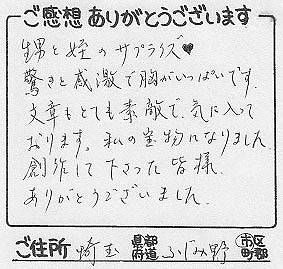 ご感想 ありがとうございます
甥と姪のサプライズ♥
驚きと感激で胸がいっぱいです。
文章もとても素敵で気に入って
おります。私の宝物になりました。
創作して下さった皆様
ありがとうございました。
ご住所 埼玉 都道府県 ふじみ野 市区町郡